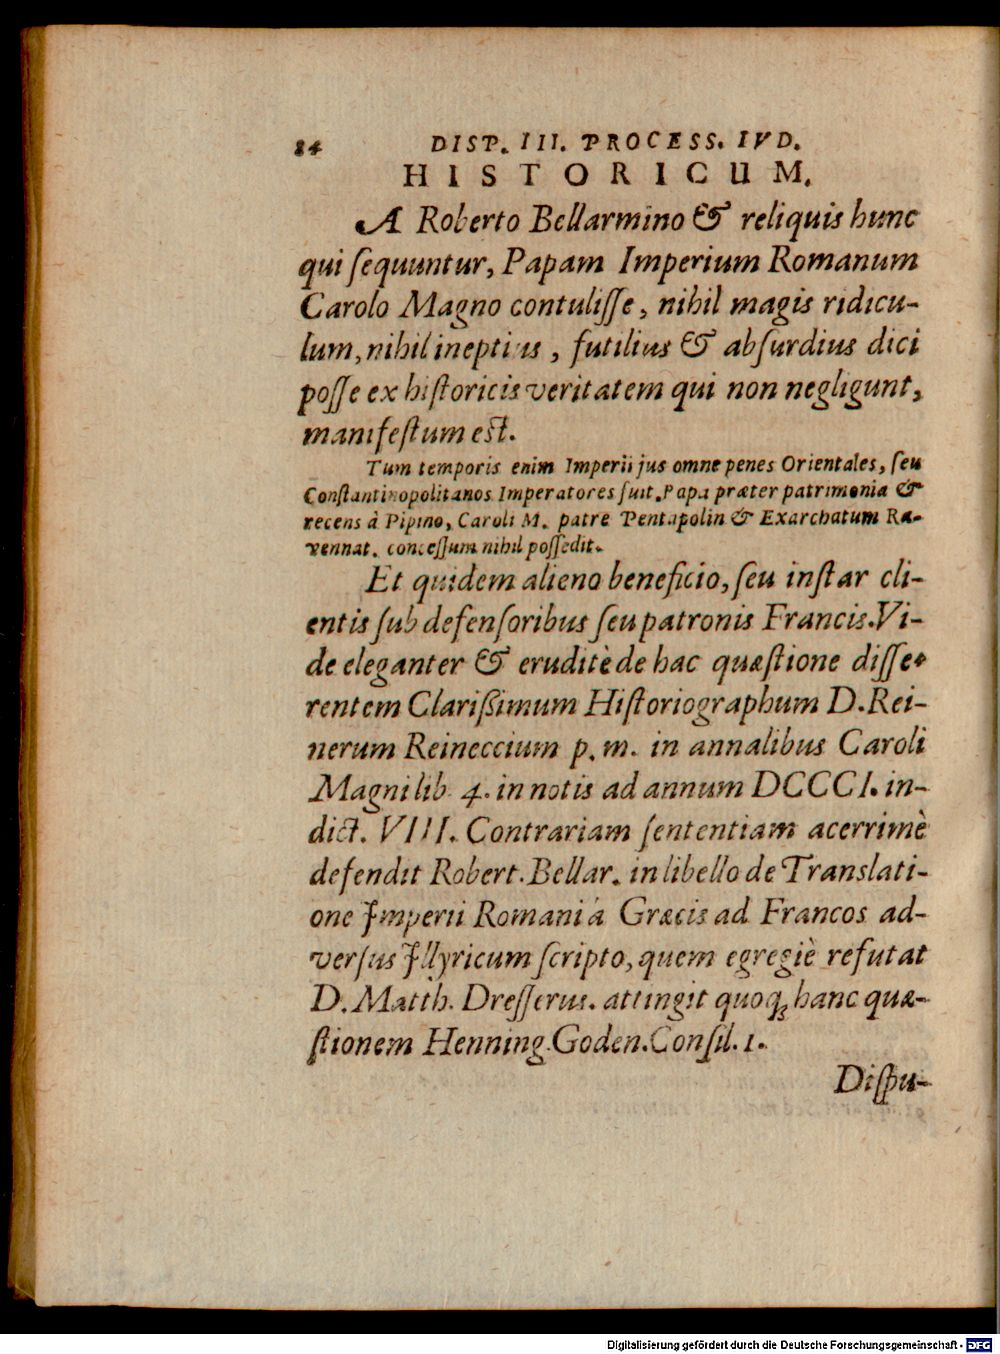 84 DISP. III. PROCESS. IVD.
HISTORICUM.
A Roberto Bellarmino & reliquis hunc
qui ſequuntur, Papam Imperium Romanum
Carolo Magno contuliſſe, nihil magis ridicu-
lum, nihil ineptius, futilius & abſurdius dici
poſſe ex hiſtoricis veritatem qui non negligunt,
manifeſtum est.
Tum temporis enim Imperii jus omne penes Orientales, ſeu
Conſtantinopolitanos Imperatores fuit. Papa præter patrimonia &
recens à Pipino, Caroli M. patre Pentapolin & Exarchatum Ra-
vennat. conceſſum nihil poſſedit.
Et quidem alieno beneficio, ſeu inſtar cli-
entis ſub defenſoribus ſeu patronis Francis. Vi-
de eleganter & eruditè de hac quæſtione diſſe-
rentem Clariſsimum Hiſtoriographum D. Rei-
nerum Reineccium p. m. in annalibus Caroli
Magni lib. 4. in notis ad annum DCCCI. in-
dict. VIII. Contrariam ſententiam acerrimè
defendit Robert. Bellar. in libello de Translati-
one Imperii Romani á Græcis ad Francos ad-
verſus Illyricum ſcripto, quem egregiè refutat
D. Matth. Dreſſerus. attingit quoqꝫ hanc quæ-
ſtionem Henning. Goden. Conſil. 1.
Diſpu-
Digitalisierung gefördert durch die Deutsche Forschungsgemeinschaft - DFG